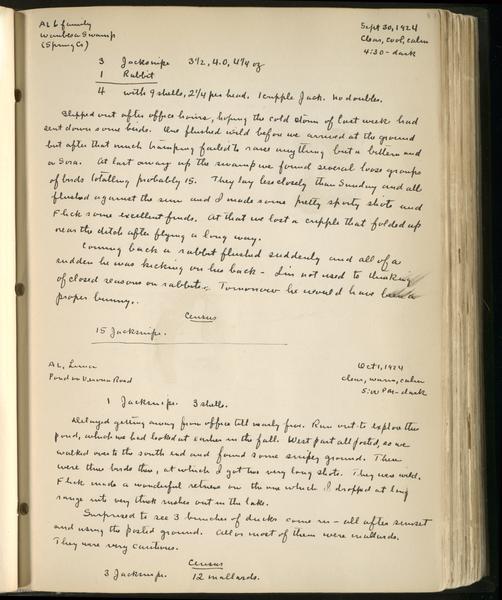 AL & family
Waubesa Swamp
(Spring Co)
Sept 30, 1924
Clear, cool, calm
4:30 - dark
3 Jacksnipe 3 1/2, 4.0, 4 1/4 oz
1 Rabbit
4 with 9 shells, 2 1/4 per head. 1 cripple Jack. no doubles.
Slipped out after office hours, hoping the cold storm of last week had
sent down some birds. One flushed wild before we arrived at the ground
but after that much tramping failed to raise anything but a bittern and
a Sora. At last away up the swamp we found several loose groups
of birds totalling probably 15. They lay less closely than Sunday and all
flushed against the sun and I made some pretty sporty shots and
Flick some excellent finds. At that we lost a cripple that folded up
near the ditch after flying a long way.
Coming back a rabbit flushed suddenly and all of a
sudden he was kicking on his back - I'm not used to thinking
of closed seasons on rabbits. Tomorrow he would have been a
proper bunny.
Census
15 Jacksnipe.
AL,
Pond on Verona Road
Oct 1, 1924
clear, warm, calm
5:00 PM - dark
1 Jacksnipe. 3 shells.
Delayed getting away from office till nearly five. Ran out to explore the
pond, which we had looked at earlier in the fall. West part all posted, so we
walked over to the south end and found some snipey ground. There
were three birds there, at which I got two very long shots. They were wild.
Flick made a wonderful retrieve on the one which I dropped at long
range into very thick rushes out in the lake.
Surprised to see 3 bunches of ducks come in - all after sunset
and using the posted ground. All or most of them were mallards.
They were very cautious.
Census
3 Jacksnipe. 12 mallards.